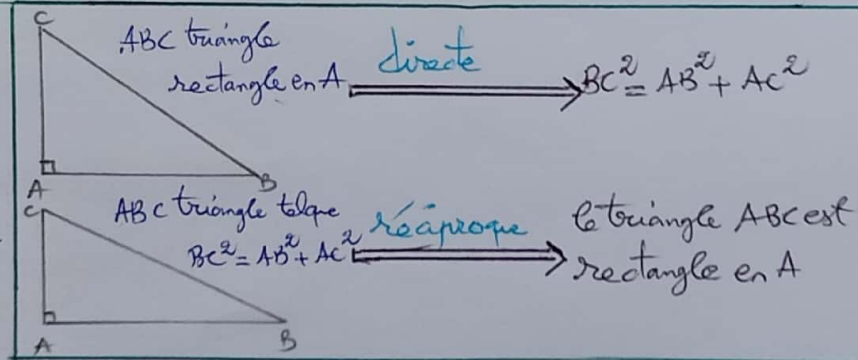 C
ABC triangle
rectangle en A
directe
BC² = AB² + AC²
A
B
C
ABC triangle telque
BC² = AB² + AC²
réciproque
le triangle ABC est
rectangle en A
A
B